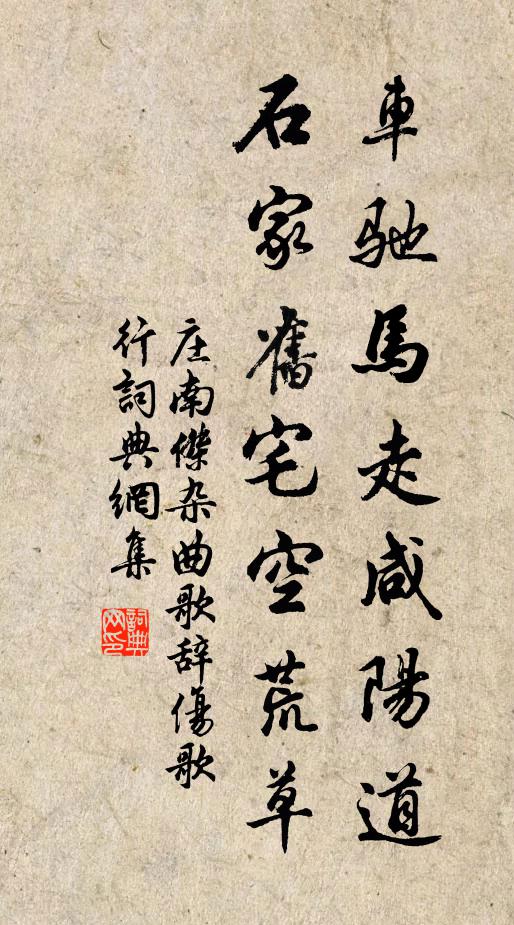 車馳馬走咸陽道
石家舊宅空荒草
庄南傑杂曲歌辞傷歌
行詞典網集
詞典網印